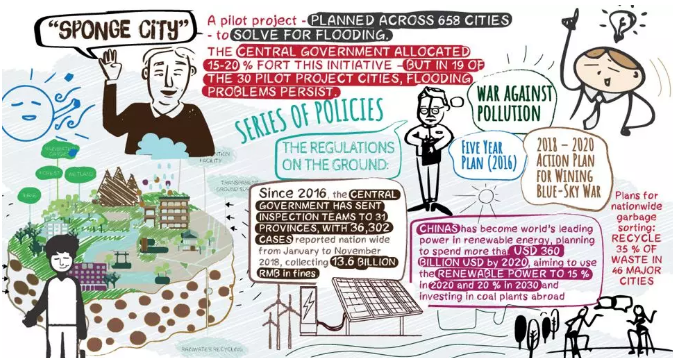 "SPONGE CITY"
A pilot project - PLANNED ACROSS 658 CITIES
- to SOLVE FOR FLOODING.
THE CENTRAL GOVERNMENT ALLOCATED
15-20 % FORT THIS INITIATIVE - BUT IN 19 OF
THE 30 PILOT PROJECT CITIES, FLOODING
PROBLEMS PERSIST.
SERIES OF POLICIES
THE REGULATIONS
ON THE GROUND:
WAR AGAINST
POLLUTION
FIVE YEAR
PLAN (2016)
2018 - 2020
ACTION PLAN
FOR WINING
BLUE-SKY WAR
Since 2016, the CENTRAL
GOVERNMENT HAS SENT
INSPECTION TEAMS TO 31
PROVINCES, WITH 36,302
CASES reported nation wide
from January to November
2018, collecting 13.6 BILLION
RMB in fines
CHINAS has become world's leading
power in renewable energy, planning
to spend more that USD 360
BILLION USD by 2020, aiming to use
the RENEWABLE POWER TO 15 %
in 2020 and 20 % in 2030 and
investing in coal plants abroad
Plans for
nationwide
garbage
sorting:
RECYCLE
35 % OF
WASTE IN
46 MAJOR
CITIES
WETLAND
RAINWATER RECYCLING